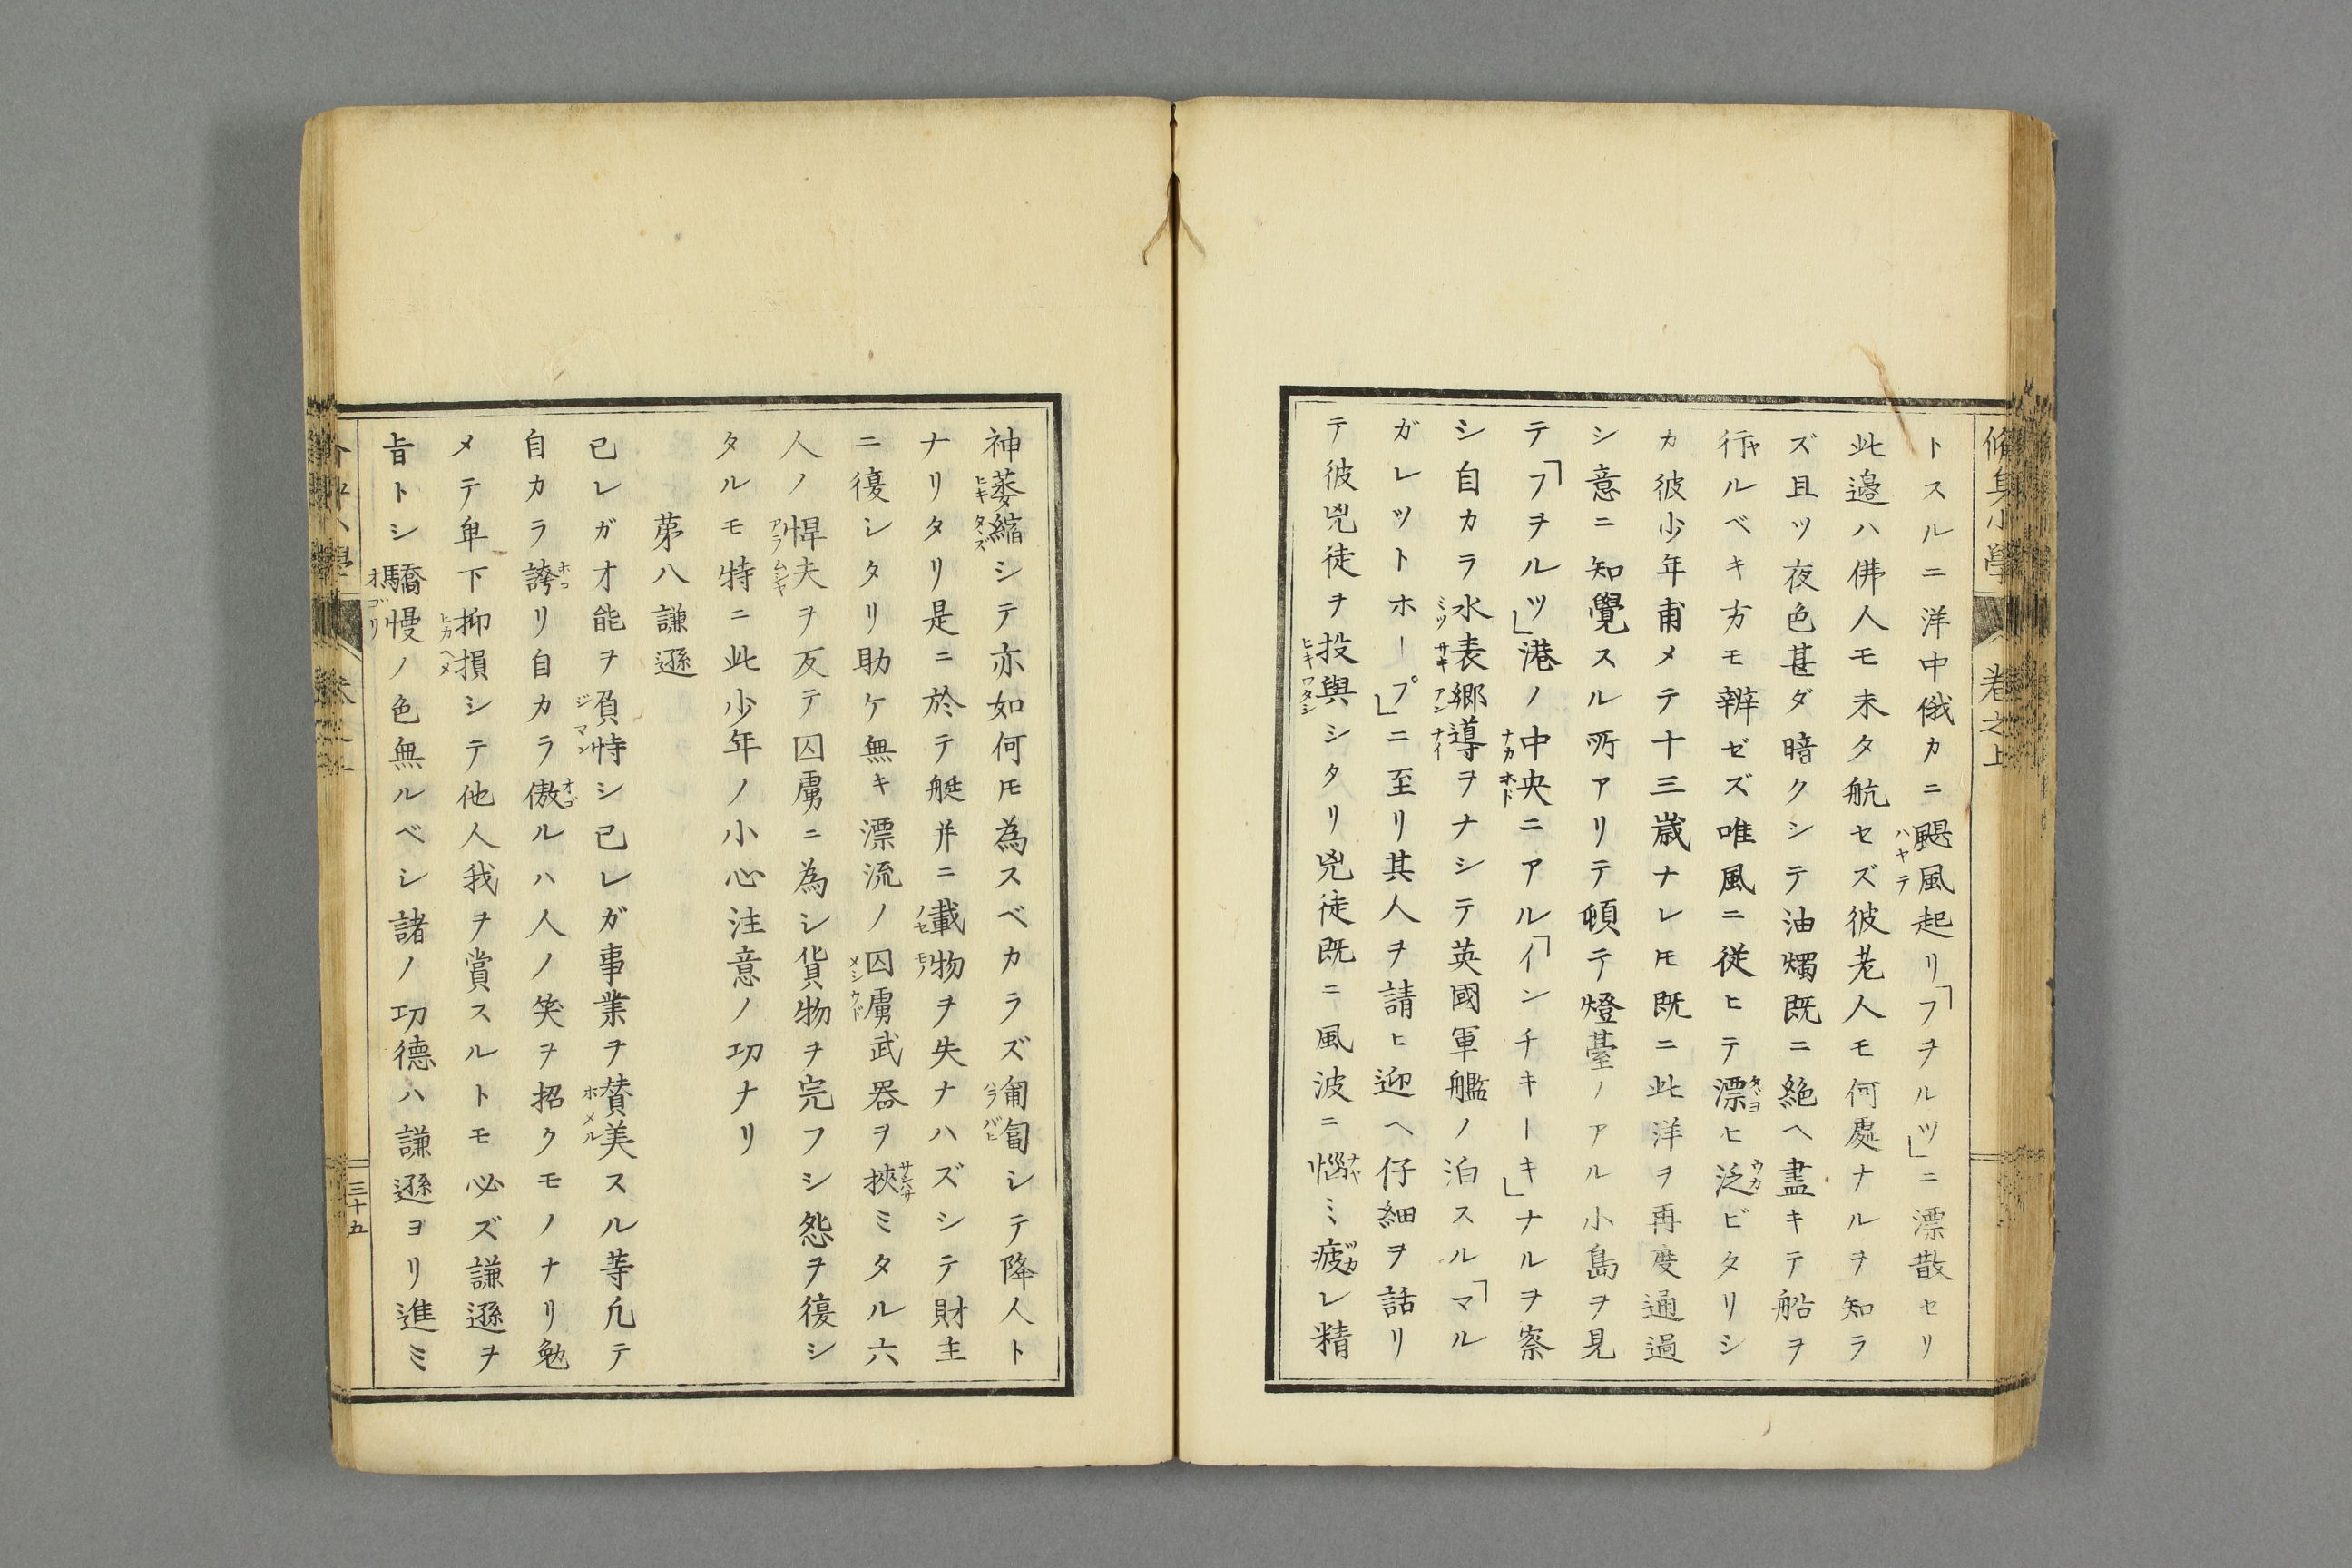 脩身小學 卷之上
トスルニ洋中俄カニ颶風起リ「フヲルツ」ニ漂散セリ
此邉ハ佛人モ未タ航セズ彼老人モ何處ナルヲ知ラ
ズ且ツ夜色甚ダ暗クシテ油燭既ニ絶ヘ盡キテ船ヲ
行ルベキ方モ辨ゼズ唯風ニ従ヒテ漂ヒ泛ビタリシ
カ彼少年甫メテ十三歳ナレ𪜈既ニ此洋ヲ再度通過
シ意ニ知覺スル所アリテ頓テ燈臺ノアル小島ヲ見
テ「フヲルツ」港ノ中央ニアル「インチキーキ」ナルヲ察
シ自カラ水表郷導ヲナシテ英國軍艦ノ泊スル「マル
ガレットホープ」ニ至リ其人ヲ請ヒ迎ヘ仔細ヲ話リ
テ彼兇徒ヲ投與シタリ兇徒既ニ風波ニ惱ミ疲レ精
神萎縮シテ亦如何𪜈為スベカラズ匍匐シテ降人ト
ナリタリ是ニ於テ艇并ニ載物ヲ失ナハズシテ財主
ニ復シタリ助ケ無キ漂流ノ囚虜武器ヲ挾ミタル六
人ノ悍夫ヲ反テ囚虜ニ為シ貨物ヲ完フシ怨ヲ復シ
タルモ特ニ此少年ノ小心注意ノ功ナリ
苐八謙遜
已レガオ能ヲ負恃シ已レガ事業ヲ賛美スル等凢テ
自カラ誇リ自カラ傲ルハ人ノ笑ヲ招クモノナリ勉
メテ卑下抑損シテ他人我ヲ賞スルトモ必ズ謙遜ヲ
旨トシ驕慢ノ色無ルベシ諸ノ功德ハ謙遜ヨリ進ミ
三十五